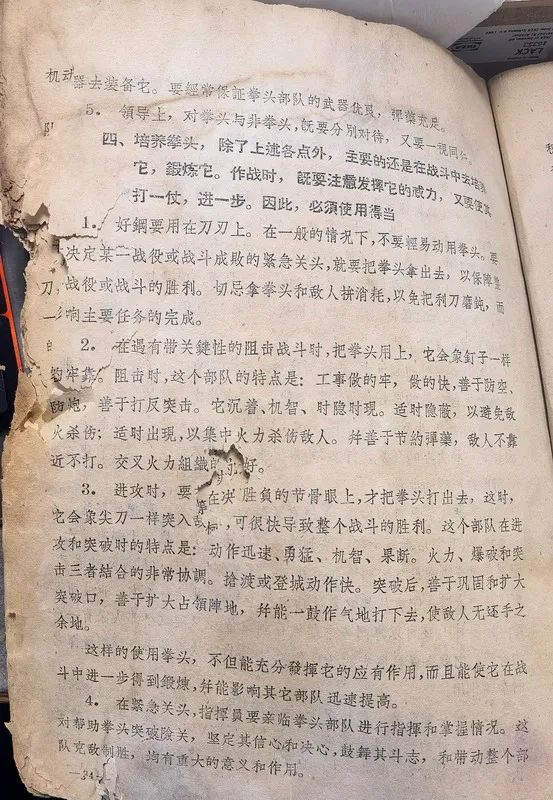 LACK
机动
器去装备它。要經常保証拳头部队的武器优良，彈藥充足。
5. 領导上，对拳头与非拳头，旣要分别对待，又要一視同
四、培养拳头，除了上述各点外，主要的还是在战斗中去培
它，鍛炼它。作战时，旣要注意发揮它的威力，又要使其
打一仗，进一步。因此，必須使用得当
1. 好鋼要用在刀刃上。在一般的情况下，不要輕易动用拳头。要
决定某一战役或战斗成敗的緊急关头，就要把拳头拿出去，以保障
战役或战斗的胜利。切忌拿拳头和敌人拼消耗，以免把利刀磨鈍，而
影响主要任务的完成。
2. 在遇有带关鍵性的阻击战斗时，把拳头用上，它会象釘子一样
牢靠。阻击时，这个部队的特点是：工事做的牢，做的快，善于防空、
防炮，善于打反突击。它沉着、机智、时隐时現。适时隐蔽，以避免敌
火杀伤；适时出現，以集中火力杀伤敌人。幷善于节約彈藥，敌人不靠
近不打。交叉火力組織 好。
3. 进攻时，要 在决 胜負的节骨眼上，才把拳头打出去，这时，
它会象尖刀一样突入 ，可很快导致整个战斗的胜利。这个部队在进
攻和突破时的特点是：动作迅速、勇猛、机智、果断。火力、爆破和突
击三者結合的非常协調。搶渡或登城动作快。突破后，善于巩固和扩大
突破口，善于扩大占領陣地，幷能一鼓作气地打下去，使敌人无还手之
余地。
这样的使用拳头，不但能充分發揮它的应有作用，而且能使它在战
斗中进一步得到鍛煉，幷能影响其它部队迅速提高。
4. 在緊急关头，指揮員要亲临拳头部队进行指揮和掌握情况。这
对帮助拳头突破险关，坚定其信心和决心，鼓舞其斗志，和带动整个部
队克敌制胜，均有重大的意义和作用。
—34—